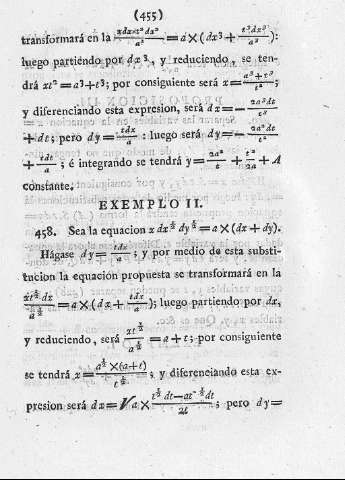 (455)
transformará en la x dx t² dx²/a² = a × (dx³ + t³ dx³/a³):
luego partiendo por dx³, y reduciendo, se ten-
drá xt² = a³ + t³; por consiguiente será x = (a³ + t³)/t²;
y diferenciando esta expresion, será dx = − 2a³dt/t³
+ dt; pero dy = tdx/a : luego será dy = − 2a²dt/t²
+ tdt/a; é integrando se tendrá y = 2a²/t + t²/2a + A
constante.
EXEMPLO II.
458. Sea la equacion x dx^½ dy^½ = a × (dx + dy).
Hágase dy = tdx/a; y por medio de esta substi-
tucion la equación propuesta se transformará en la
xt^½ dx/a^½ = a × (dx + tdx/a); luego partiendo por dx,
y reduciendo, será xt^½/a^½ = a + t; por consiguiente
se tendrá x = a^½ × (a+t)/t^½, y diferenciando esta ex-
presion será dx = √a × (t^½ dt − at^−½ dt)/2t; pero dy =